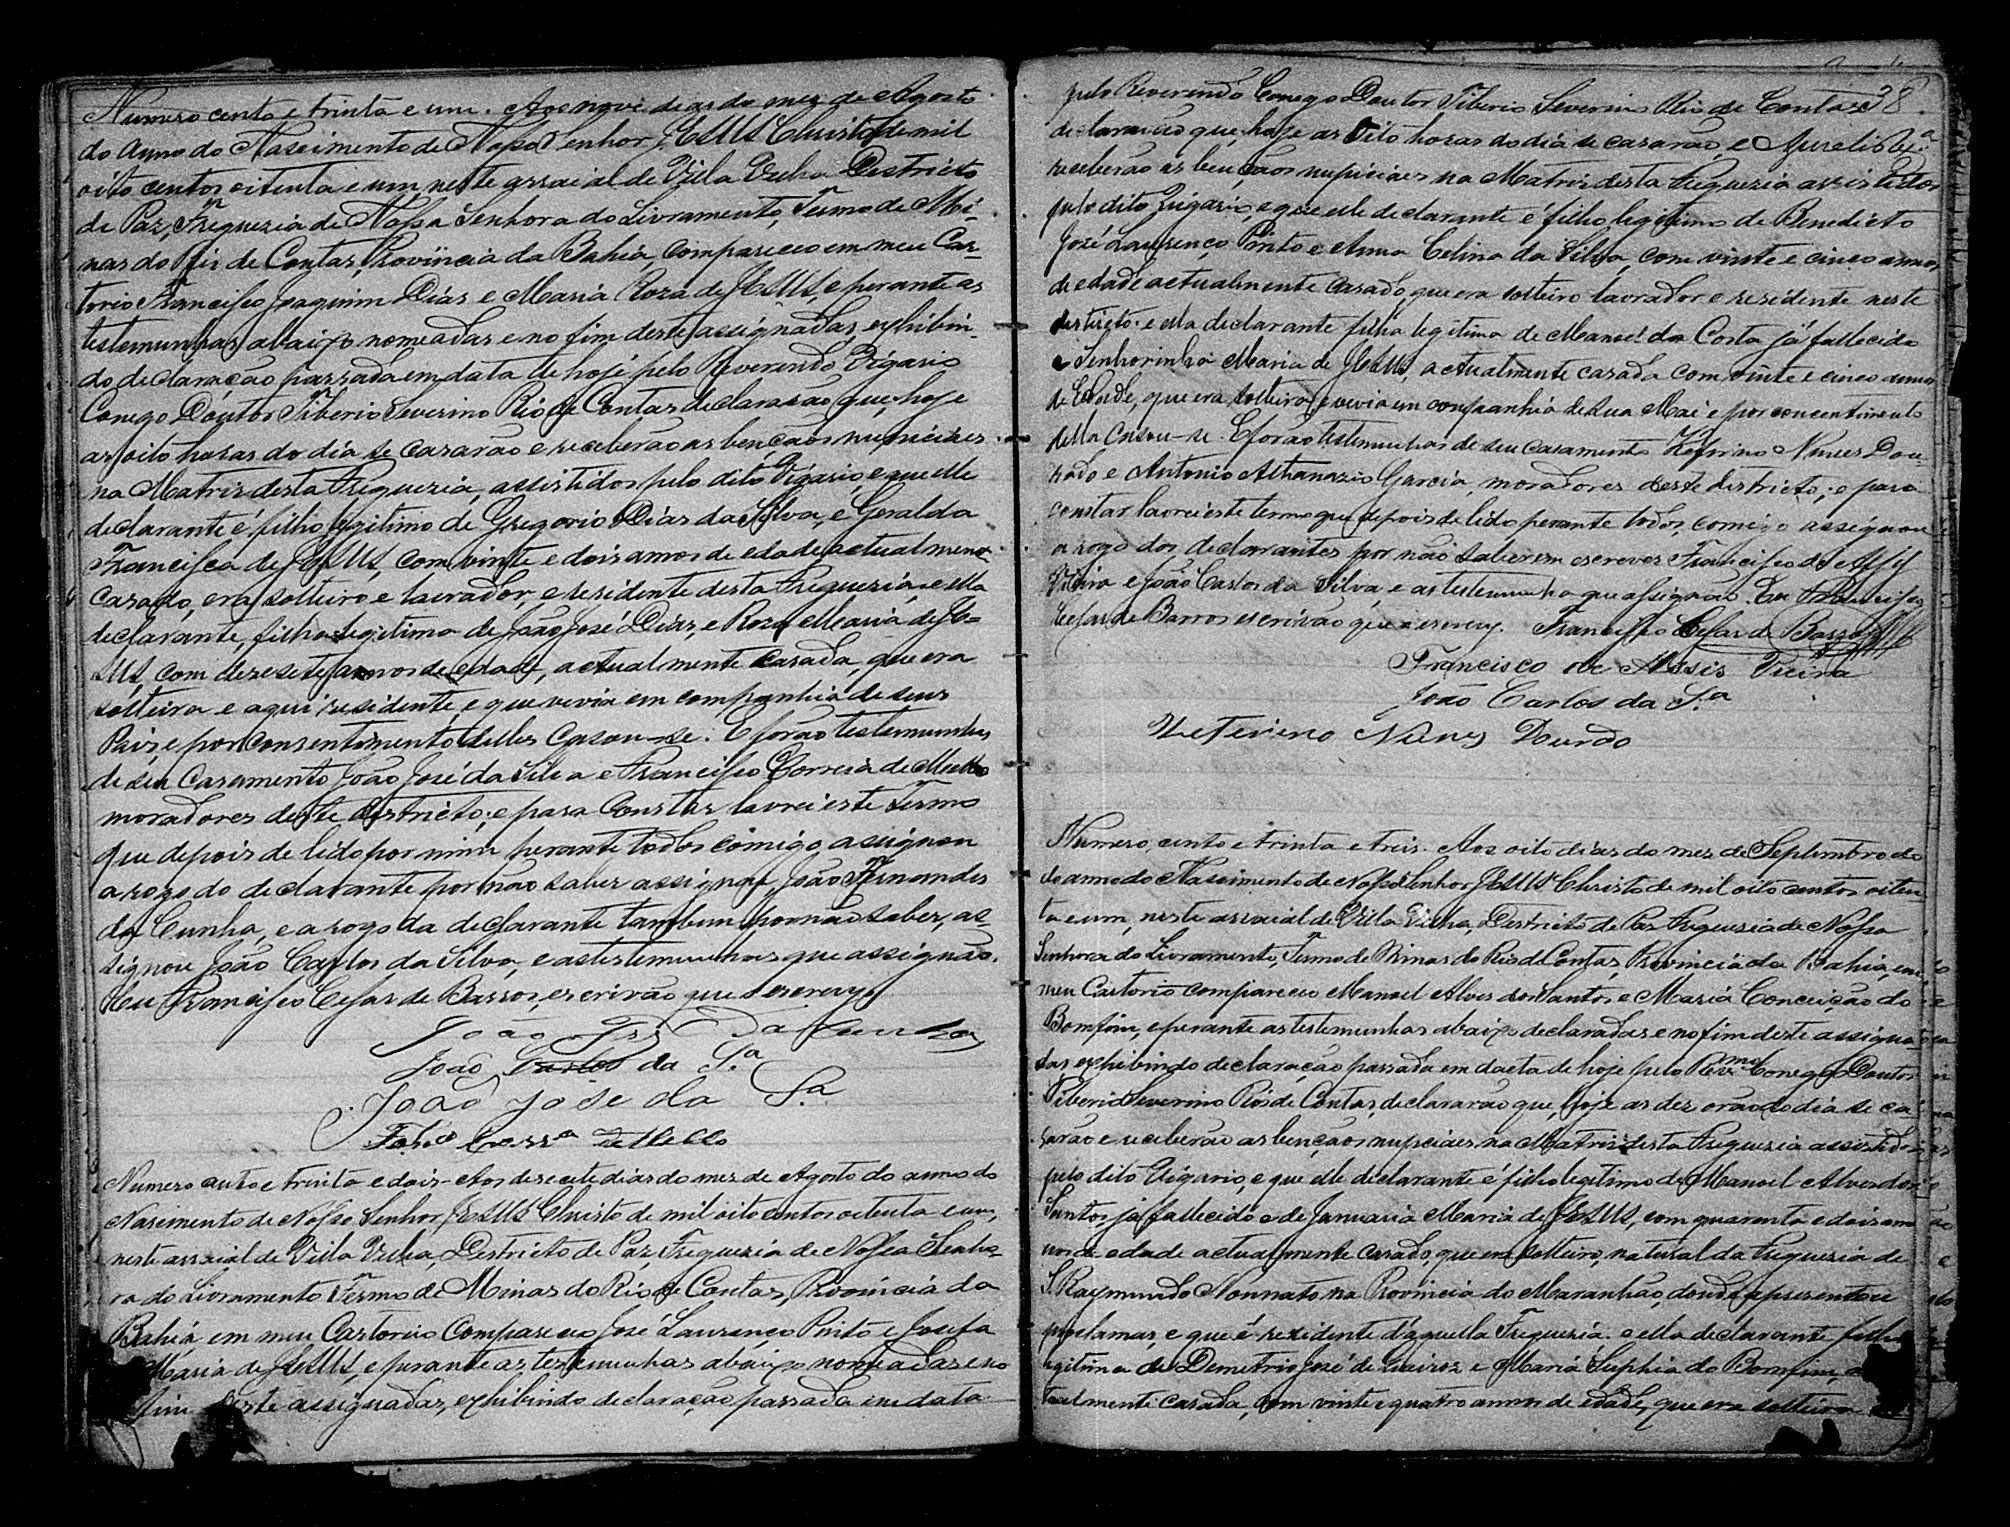 Numero cento e trinta e um. Aos nove dias do mez de Agosto
do anno do Nascimento de Nosso Senhor JESUS Christo de mil
oito centos oitenta e um, neste arraial de Villa Velha Districto
de Paz, Freguezia de Nossa Senhora do Livramento, Termo de Mi-
nas do Rio de Contas, Provincia da Bahia, compareceo em meu Car-
torio Francisco Joaquim Dias e Maria Roza de JESUS, e perante as
testemunhas abaixo nomeadas e no fim deste assignadas, exhibin-
do declaração passada em data de hoje pelo Reverendo Vigario
Conego Doutor Tiberio Severino Rio de Contas declararão que, hoje
as oito horas do dia se casarão e receberão as bençãos nupciaes
na Matriz desta Freguezia, assistidos pelo dito Vigario, e que elle
declarante é filho legitimo de Gregorio Dias da Silva, e Geralda
Francisca de JESUS, com vinte e dois annos de edade actualmente
casado, era solteiro e lavrador, e residente desta Freguezia, e ella
declarante, filha legitima de João José Dias, e Rosa Maria de JE-
SUS, com desesete annos de edade, actualmente casada, que era
solteira e aqui residente, e que vivia em companhia de seus
Paiz, e por consentimento delles casou-se. E forão testemunhas
de seu casamento João José da Silva e Francisco Correia de Mello
moradores deste districto; e para constar lavrei este Termo
que depois de lido por mim perante todos, comigo assignou
a rogo do declarante por não saber assignar, João Fernandes
da Cunha, e a rogo da declarante tambem por não saber, as-
signou João Carlos da Silva, e as testemunhas que assignão.
Eu Francisco Cesar de Barros, escrivão que o escrevy.
João Frz da Cunha
João Carlos da S.ª
João José da S.ª
Fr.co Corr.ª de Mello
Numero cento e trinta e dois. Aos desecete dias do mez de Agosto do anno do
Nascimento de Nosso Senhor JESUS Christo de mil oito centos oitenta e um,
neste arraial de Villa Velha, Districto de Paz, Freguezia de Nossa Senho-
ra do Livramento Termo de Minas do Rio de Contas, Provincia da
Bahia, em meu Cartorio compareceo José Laurenço Pinto e Josefa
Maria de JESUS, e perante as testemunhas abaixo nomeadas e no
fim deste assignadas, exhibindo declaração passada em data
pelo Reverendo Conego Doutor Tiberio Severino Rio de Contas 38
declararão que, hoje as oito horas do dia se casarão, e
receberão as bençãos nupciaes na Matriz desta Freguezia assistidos
pelo dito Vigario, e que elle declarante é filho legitimo de Benedicto
José Laurenço Pinto e Anna Celina da Silva, com vinte e cinco annos
de edade actualmente casado, que era solteiro lavrador e residente neste
districto; e ella declarante filha legitima de Manoel da Costa já fallecido
e Senhorinha Maria de JESUS, actualmente casada com vinte e cinco annos
de Edade, que era solteira e vivia em companhia de sua Mãe e por concentimento
della casou-se. E forão testemunhas de seu casamento Zeferino Nunes Dou-
rado e Antonio Athanazio Garcia, moradores deste districto; e para
constar lavrei este termo que depois de lido perante todos, comigo assignou
a rogo dos declarantes por não saberem escrever Francisco de Assis
Vieira e João Carlos da Silva, e as testemunha que assignão. Eu Francisco
Cesar de Barros escrivão que o escrevy. Francisco Cesar de Barros
Francisco de Assis Vieira
João Carlos da S.ª
Zeferino Nunes Dourdo
Numero cento e trinta e treis. Aos oito dias do mez de Septembro do
do anno do Nascimento de Nosso Senhor JESUS Christo de mil oito centos oiten-
ta e um, neste arraial de Villa Velha, Districto de Paz Freguezia de Nossa
Senhora do Livramento, Termo de Minas do Rio de Contas, Provincia da Bahia, em
meu Cartorio compareceo Manoel Alves dos Santos e Maria Conceição do
Bomfim, e perante as testemunhas abaixo declaradas e no fim deste assigna-
das, exhibindo declaração passada em data de hoje pelo Rev.mo Conego Doutor
Tiberio Severino Rio de Contas, declararão que, hoje as dez oras do dia se ca-
sarão e receberão as bençãos nupciaes, na Matriz desta Freguezia assistidos
pelo dito Vigario, e que elle declarante é filho legitimo de Manoel Alves dos
Santos já fallecido e de Januaria Maria de JESUS, com quarenta e dois an-
nos de edade actualmente casado, que era solteiro, natural da Freguezia de
S. Raymundo Nonnato, na Provincia do Maranhão, donde apresentou
proclamas, e que é residente d'aquella Freguezia: e ella declarante filha
legitima de Demetrio José de Queiroz e Maria Suphia do Bomfim,
tualmente casada, com vinte e quatro annos de edade, que era solteira